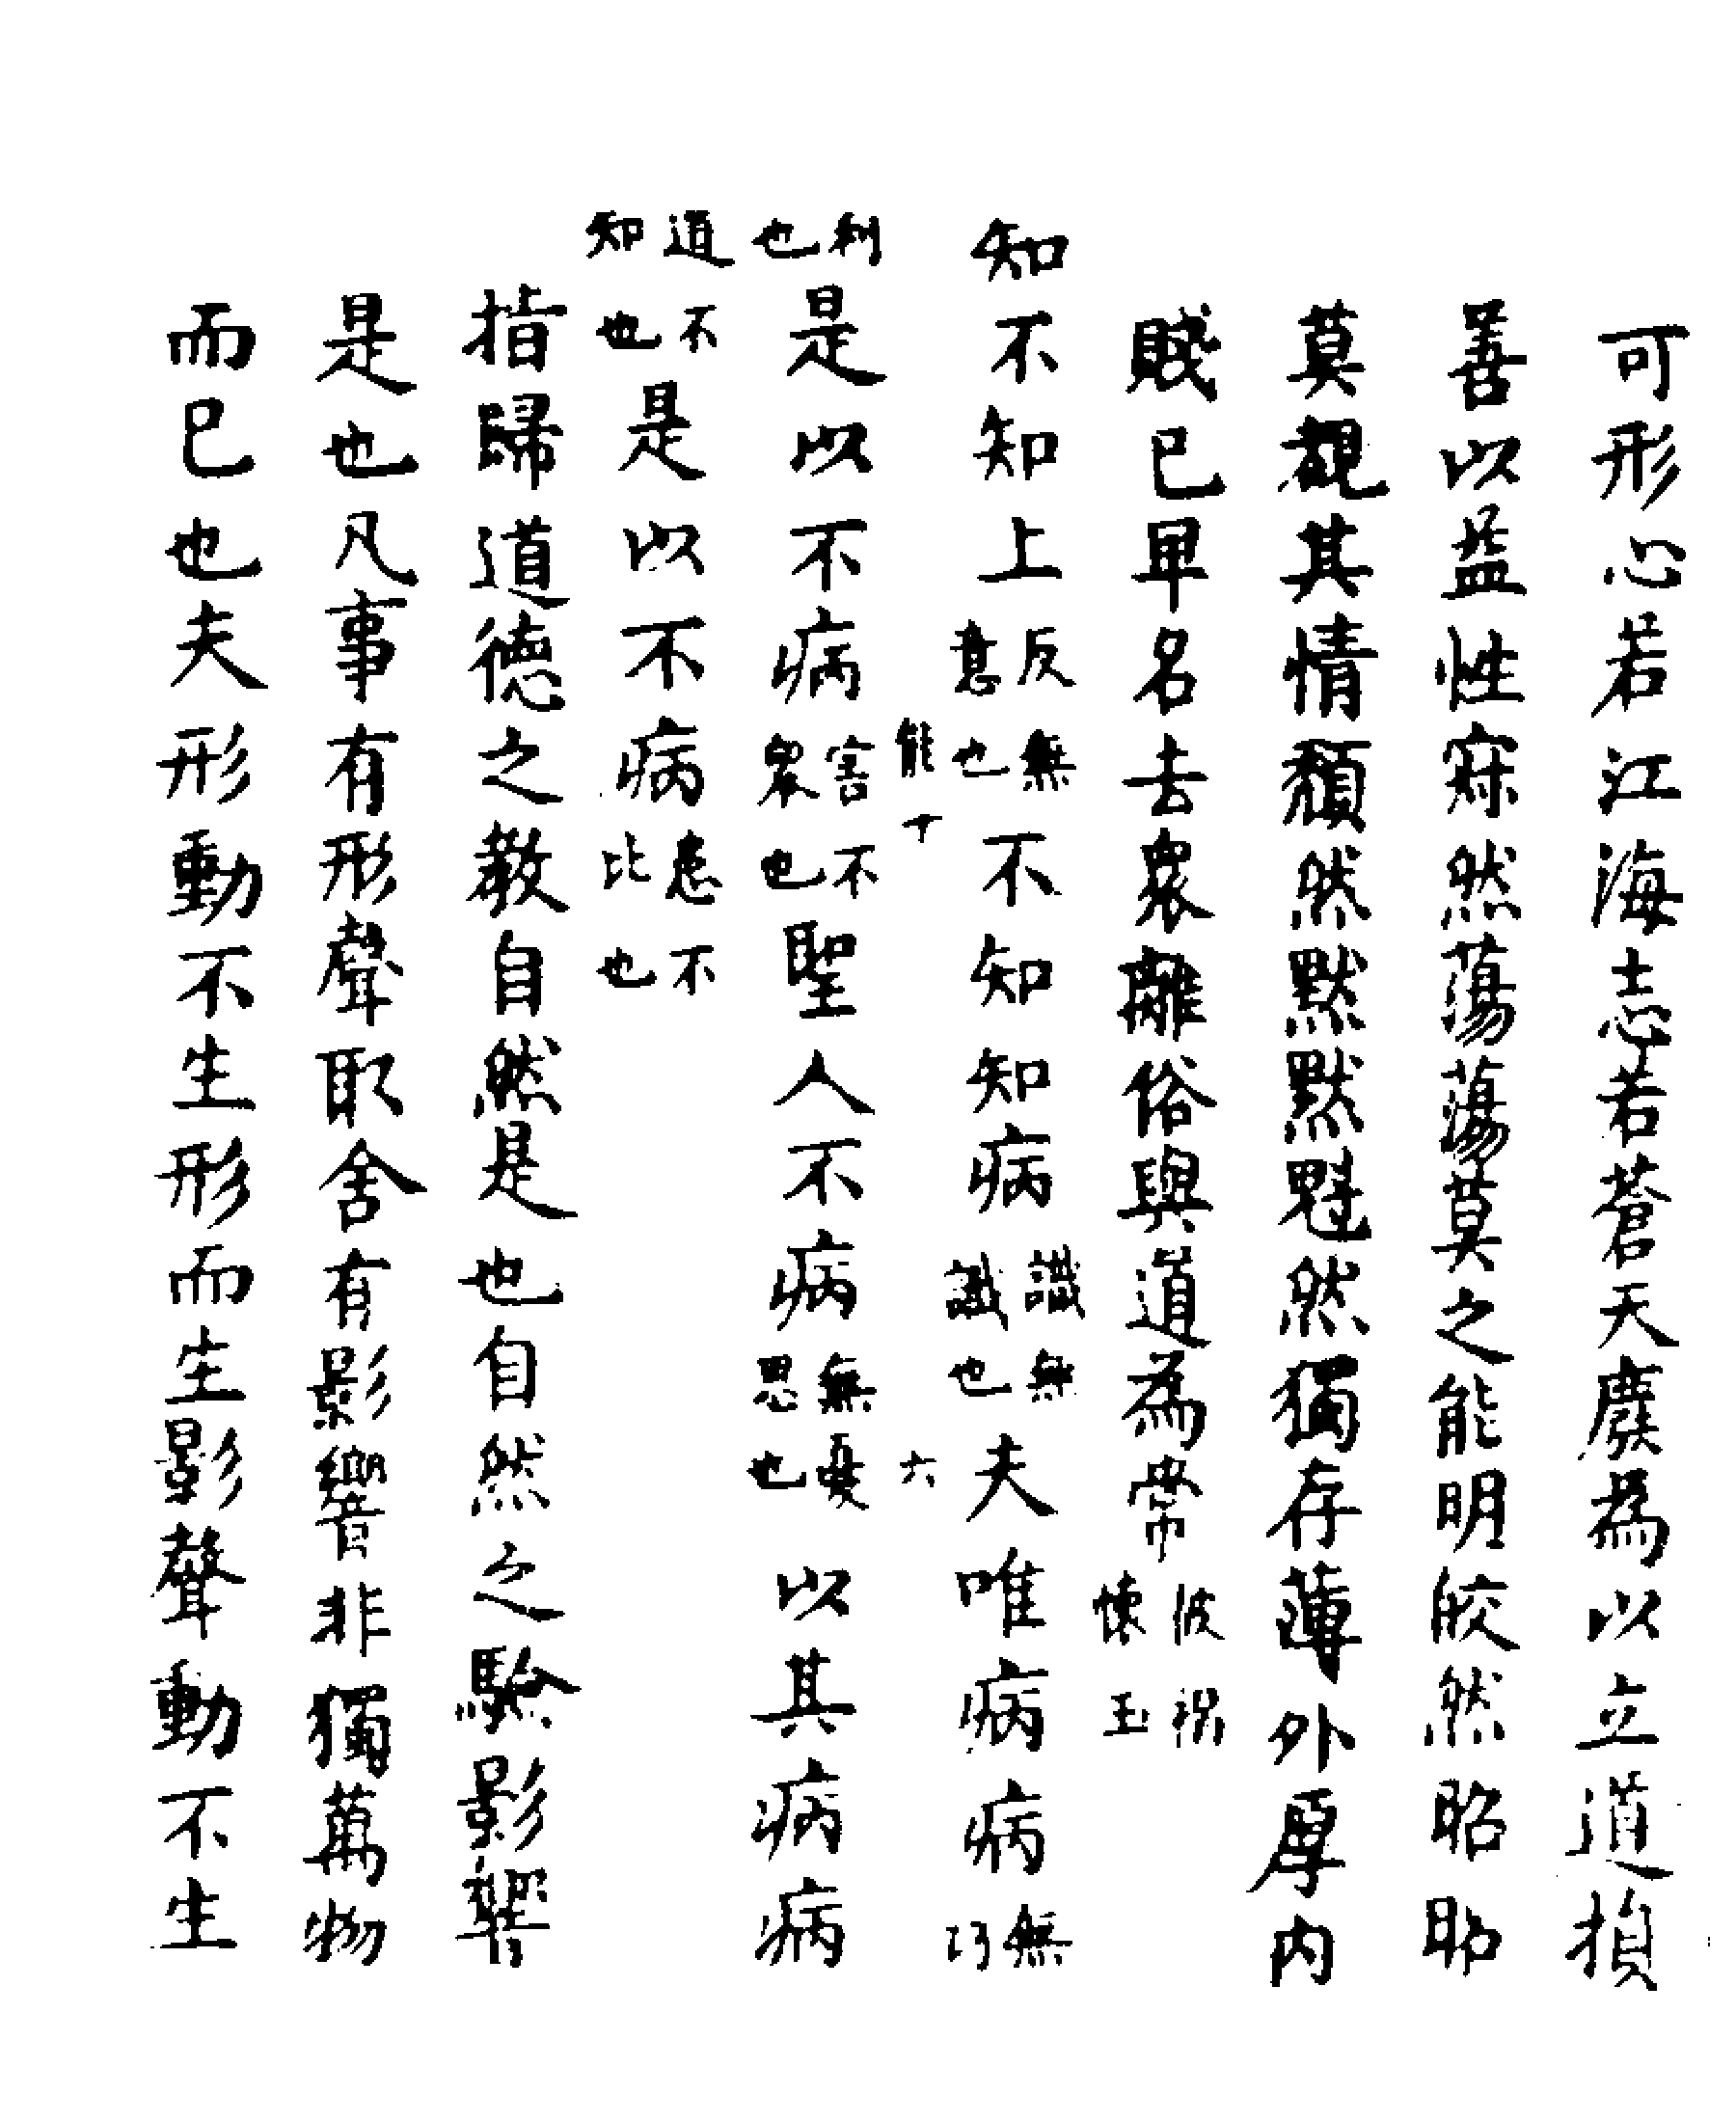 可形心若江海志若蒼天廢為以立道損
善以益性寂然蕩蕩莫之能明皎然昭昭
莫覩其情頹然默默魁然獨存薄外厚內
賤己卑名去衆離俗與道為常被褐懷玉
知不知上反無意也不知知病識無識也夫唯病病無巧
能十
六
利也是以不病害不衆也聖人不病無憂思也以其病病
道不知也是以不病患不比也
指歸道德之教自然是也自然之驗影響
是也凡事有形聲取舍有影響非獨萬物
而已也夫形動不生形而生影聲動不生